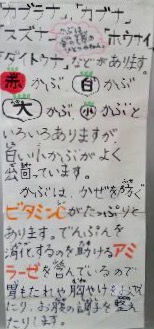 「カブラナ」「カブナ」
「スズナ」「ホウナイ」
「ダイトウナ」などがあります。
赤かぶ 白かぶ
大かぶ 小かぶと
いろいろありますが
白い小かぶがよく
出回っています。
かぶは、かぜを防ぐ
ビタミンCがたっぷりと
あります。でんぷんを
消化するのを助けるアミ
ラーゼを含んでいるので
胃もたれや胸やけをふせい
だり、お腹の調子を整え
たりします。